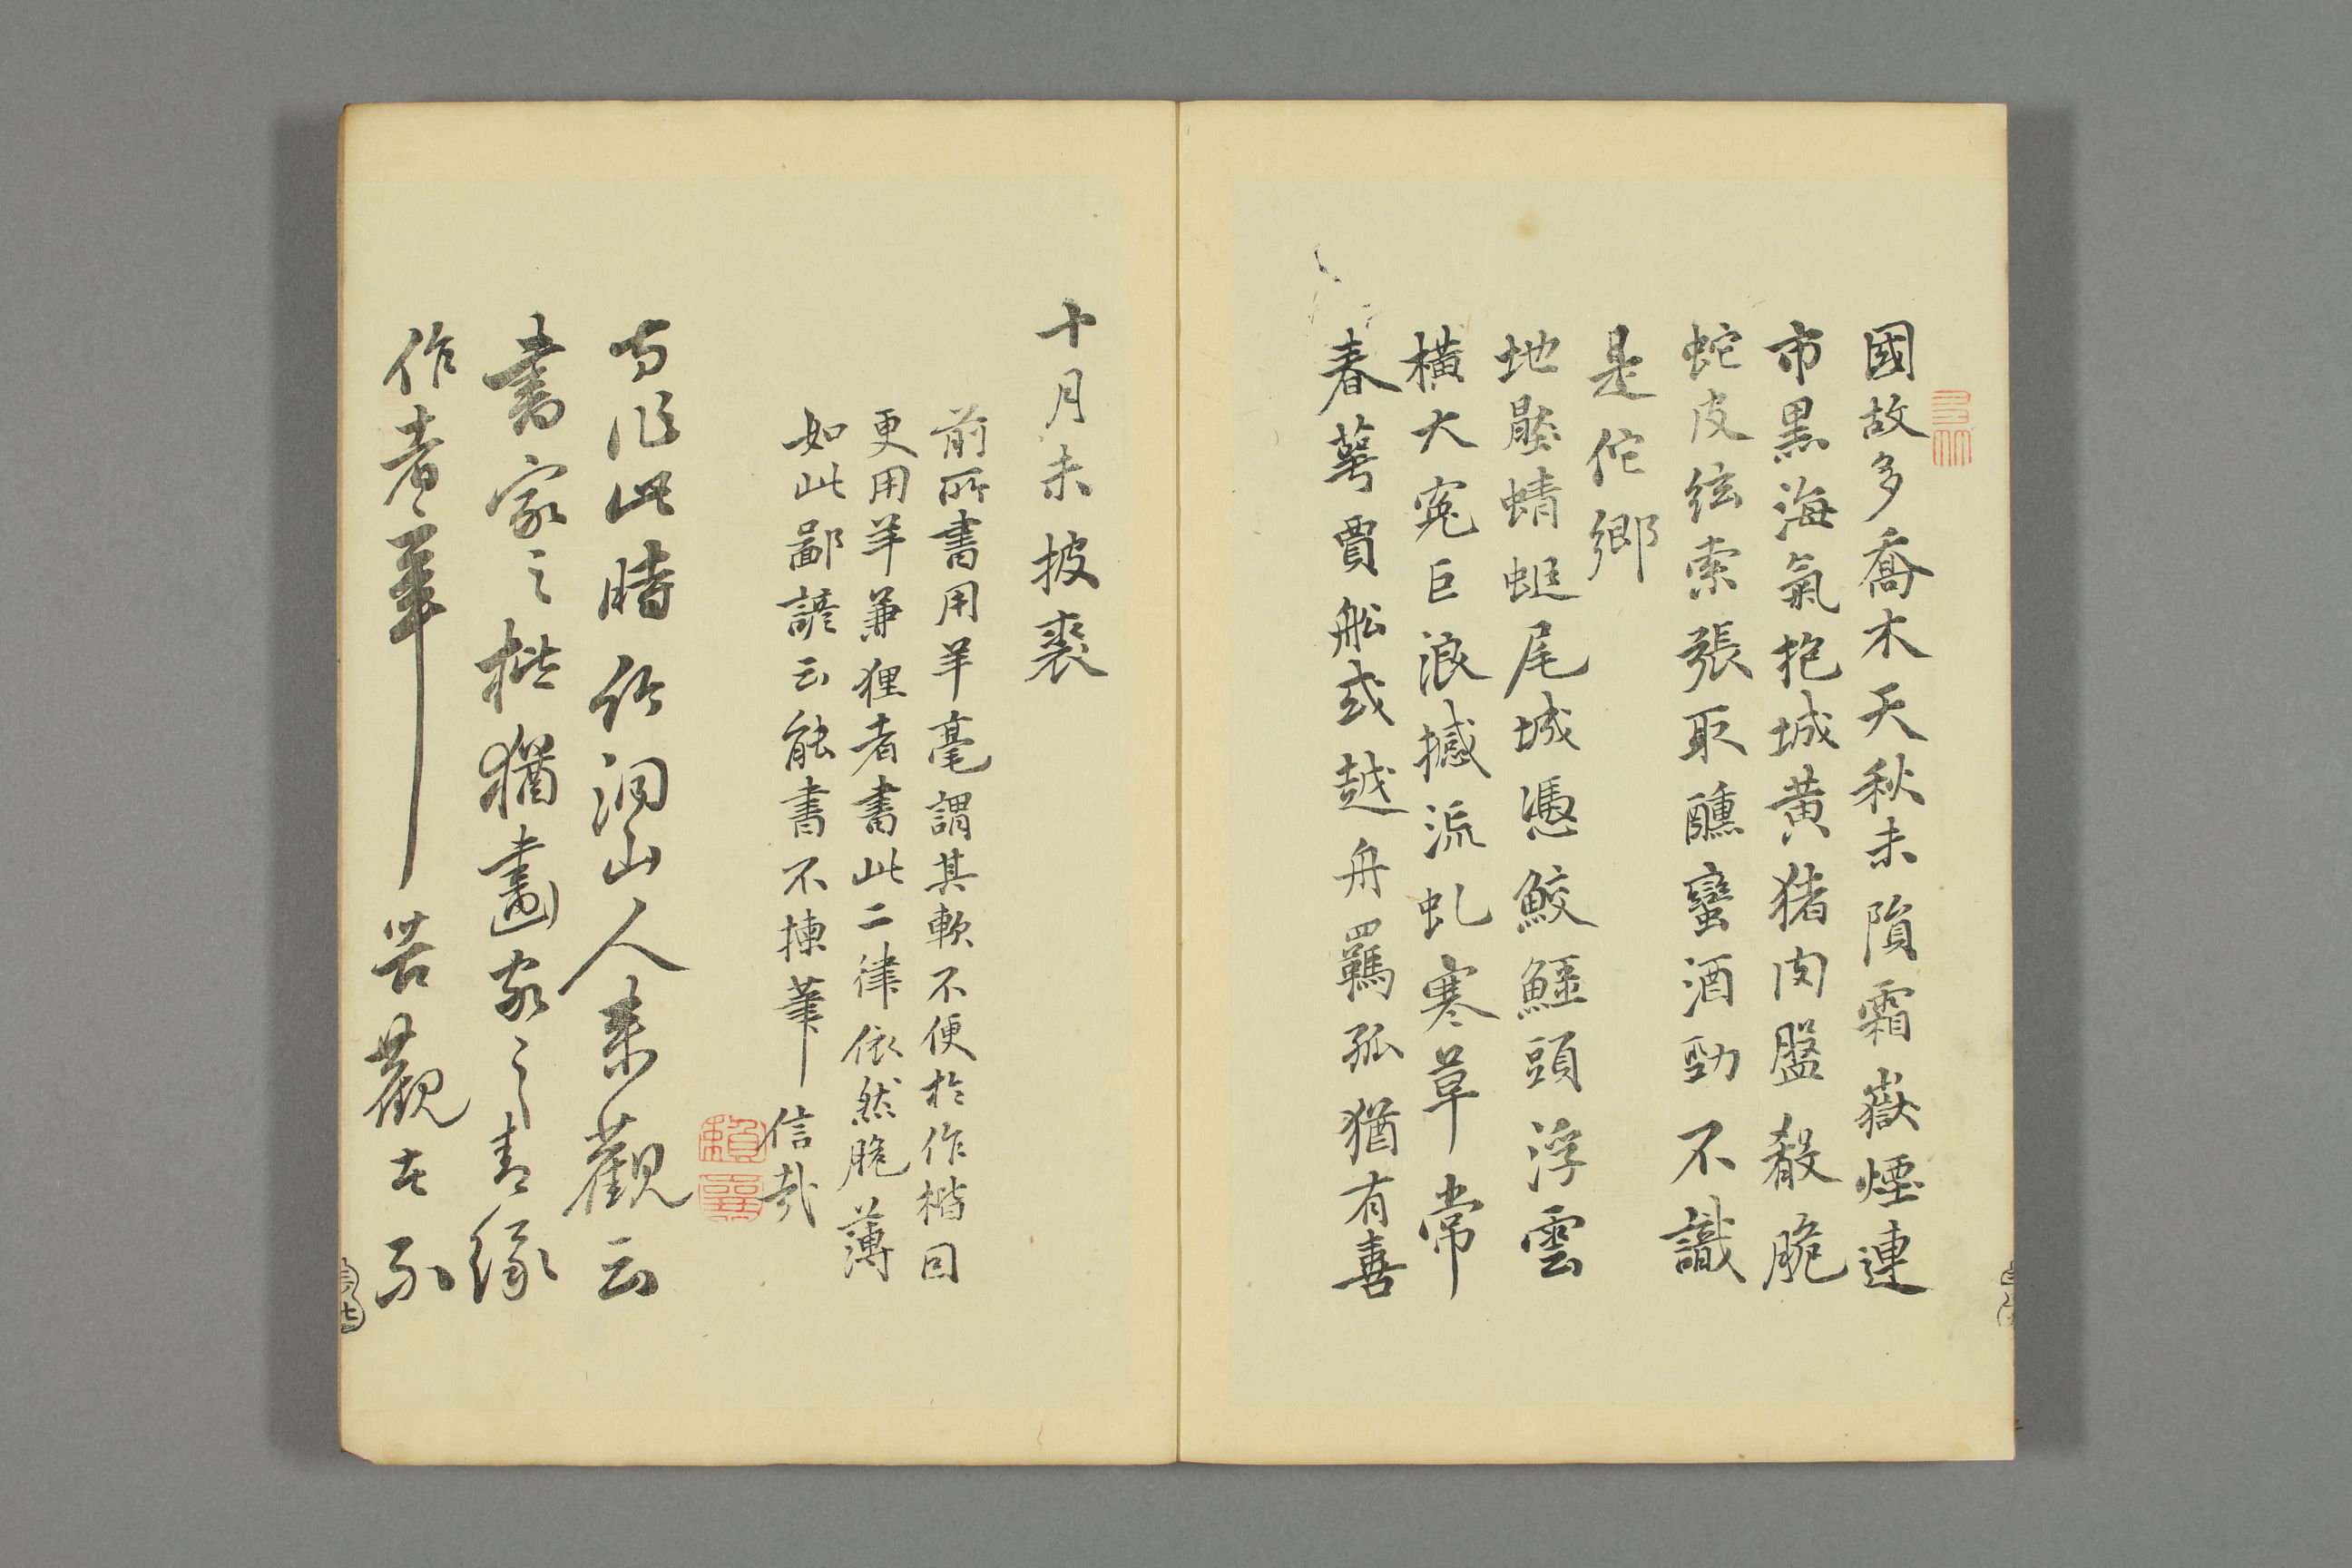 國故多喬木天秋未隕霜嶽煙連
市黒海氣抱城黄猪肉盤殽脆
蛇皮絃索張取醺蠻酒勁不識
是佗鄉
地壓蜻蜓尾城憑鮫鱷頭浮雲
横大寃巨浪撼流虬寒草常
春蕚賈舩或越舟羈孤猶有喜
十月未披裘
前所書用羊毫謂其軟不便於作楷因
更用羊兼狸者書此二律依然脆薄
如此鄙諺云能書不揀筆信哉
此時竹洞山人来觀云
書家之楷猶畫家之青緑
作者苦觀者不